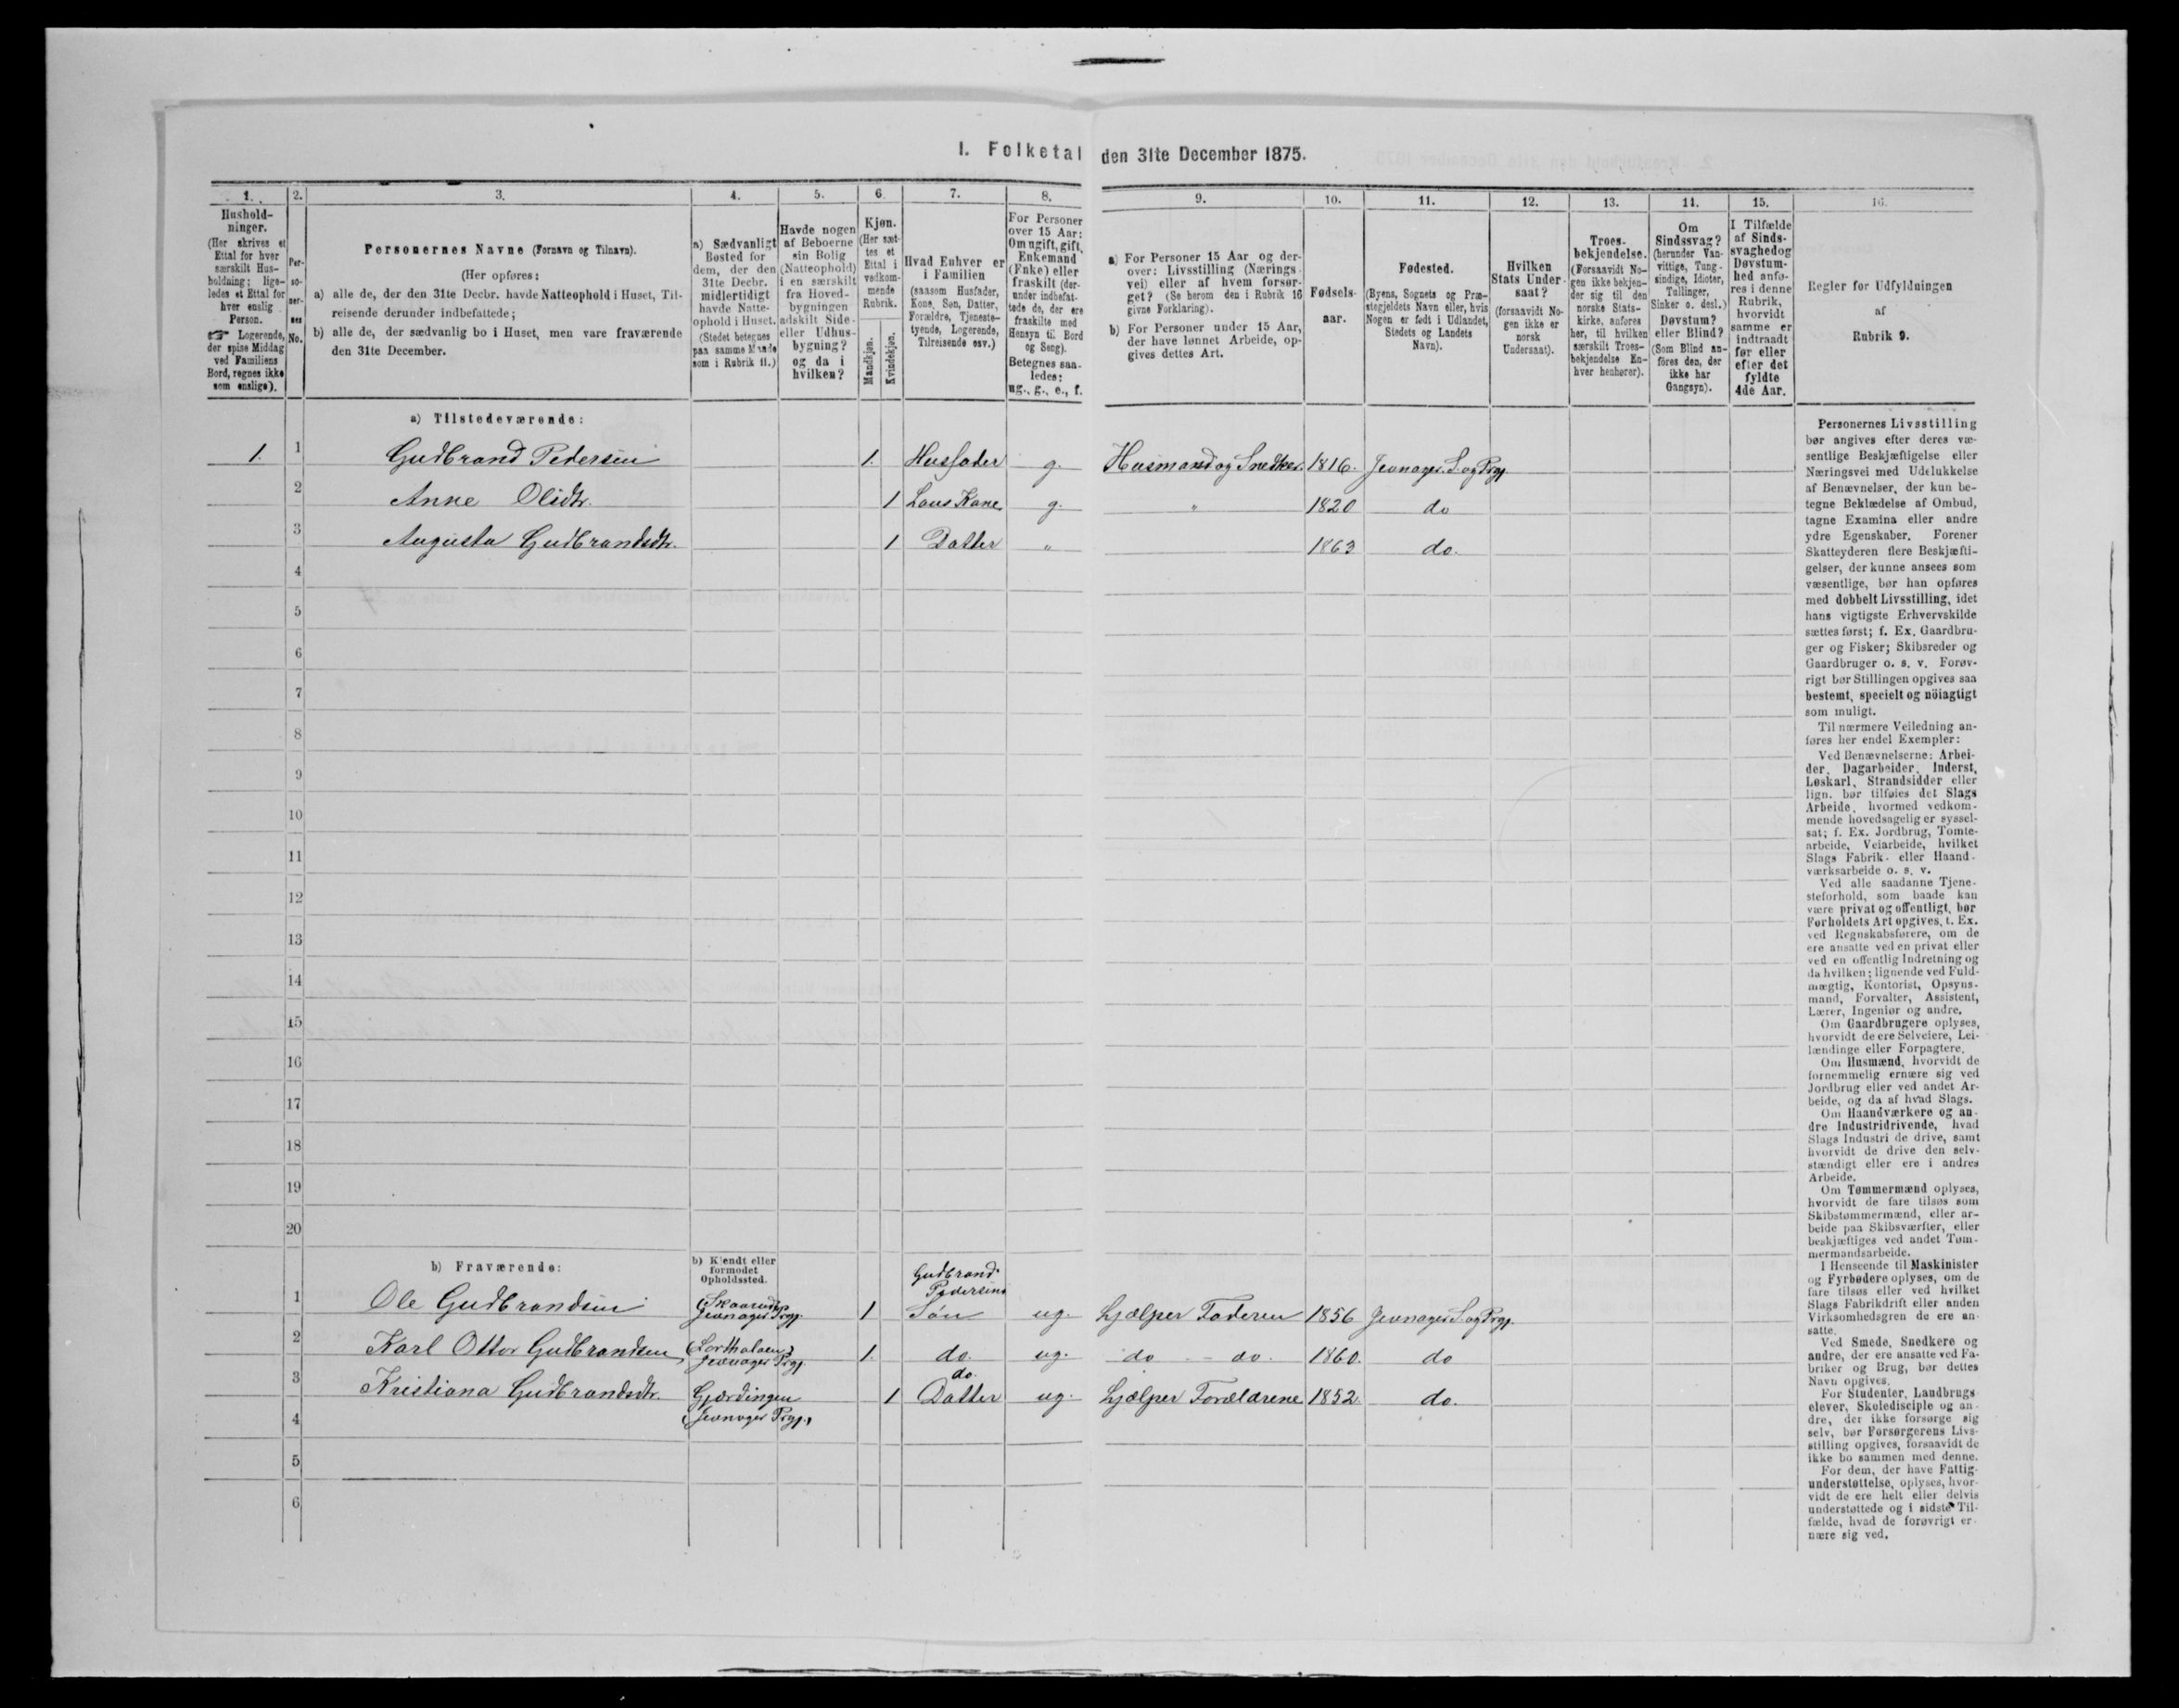 I. Folketal den 31te December 1875.
1. 2. 3. 4. 5. 6. 7. 8. 9. 10. 11. 12. 13. 14. 15. 16.
Hushold-
ninger.
(Her skrives et
Ettal for hver
særskilt Hus-
holdning; lige-
ledes et Ettal for
hver enslig
Person.
☞ Logerende,
der spise Middag
ved Familiens
Bord, regnes ikke
som enslige).
Per-
so-
ner-
nes
No.
Personernes Navne (Fornavn og Tilnavn).
(Her opføres:
a) alle de, der den 31te Decbr. havde Natteophold i Huset, Til-
reisende derunder indbefattede;
b) alle de, der sædvanlig bo i Huset, men vare fraværende
den 31te December.
a) Sædvanligt
Bosted for
dem, der den
31te Decbr.
midlertidigt
havde Natte-
ophold i Huset.
(Stedet betegnes
paa samme Maade
som i Rubrik 11.)
Havde nogen
af Beboerne
sin Bolig
(Natteophold)
i en særskilt
fra Hoved-
bygningen
adskilt Side-
eller Udhus-
bygning?
og da i
hvilken?
Kjøn.
(Her sæt-
tes et
Ettal i
vedkom-
mende
Rubrik.
Mandkjøn.
Kvindekjøn.
Hvad Enhver er
i Familien
(saasom Husfader,
Kone, Søn, Datter,
Forældre, Tjeneste-
tyende, Logerende,
Tilreisende osv.)
For Personer
over 15 Aar:
Om ugift, gift,
Enkemand
(Enke) eller
fraskilt (der-
under indbefat-
tede de, der ere
fraskilte med
Hensyn til Bord
og Seng).
Betegnes saa-
ledes:
ug., g., e., f.
a) For Personer 15 Aar og der-
over: Livsstilling (Nærings-
vei) eller af hvem forsør-
get? (Se herom den i Rubrik 16
givne Forklaring).
b) For Personer under 15 Aar,
der have lønnet Arbeide, op-
gives dettes Art.
Fødsels-
aar.
Fødested.
(Byens, Sognets og Præ-
stegjeldets Navn eller, hvis
Nogen er født i Udlandet,
Stedets og Landets
Navn).
Hvilken
Stats Under-
saat?
(forsaavidt No-
gen ikke er
norsk
Undersaat).
Troes-
bekjendelse.
(Forsaavidt No-
gen ikke bekjen-
der sig til den
norske Stats-
kirke, anføres
her, til hvilken
særskilt Troes-
bekjendelse En-
hver henhører).
Om
Sindssvag?
(herunder Van-
vittige, Tung-
sindige, Idioter,
Tullinger,
Sinker o. desl.)
Døvstum?
eller Blind?
(Som Blind an-
føres den, der
ikke har
Gangsyn).
I Tilfælde
af Sinds-
svaghed og
Døvstum-
hed anfø-
res i denne
Rubrik,
hvorvidt
samme er
indtraadt
før eller
efter det
fyldte
4de Aar.
Regler for Udfyldningen
af
Rubrik 9.
a) Tilstedeværende:
1. 1 Gudbrand Pedersen 1. Husfader g. Husmand og Snedker. 1816. Jevnager. S. og Prgj.
2 Anne Olsdtr. 1 Hans Kone g. „ 1820 do
3 Augusta Gudbrandsdtr. 1 Datter „ 1863 do.
4
5
6
7
8
9
10
11
12
13
14
15
16
17
18
19
20
b) Fraværende:
b) Kjendt eller
formodet
Opholdssted.
Gudbrand
Pedersens
1 Ole Gudbrandsen Jevnager Prgj. 1 Søn ug. hjælper Faderen 1856 Jevnager S. og Prgj.
2 Karl Otto Gudbrandsen Jevnager Prgj. 1. do. ug. do — do. 1860. do
do.
3 Kristiana Gudbrandsdtr. Gjærdingen 1 Datter ug. hjælper Forældrene 1852. do.
4 (Jevnager Prgj.)
5
6
Personernes Livsstilling
bør angives efter deres væ-
sentlige Beskjæftigelse eller
Næringsvei med Udelukkelse
af Benævnelser, der kun be-
tegne Beklædelse af Ombud,
tagne Examina eller andre
ydre Egenskaber. Forener
Skatteyderen flere Beskjæfti-
gelser, der kunne ansees som
væsentlige, bør han opføres
med dobbelt Livsstilling, idet
hans vigtigste Erhvervskilde
sættes først; f. Ex. Gaardbru-
ger og Fisker; Skibsreder og
Gaardbruger o. s. v. Forøv-
rigt bør Stillingen opgives saa
bestemt, specielt og nöiagtigt
som muligt.
Til nærmere Veiledning an-
føres her endel Exempler:
Ved Benævnelserne: Arbei-
der, Dagarbeider, Inderst,
Løskarl, Strandsidder eller
lign. bør tilføies det Slags
Arbeide, hvormed vedkom-
mende hovedsagelig er syssel-
sat; f. Ex. Jordbrug, Tomte-
arbeide, Veiarbeide, hvilket
Slags Fabrik- eller Haand-
værksarbeide o. s. v.
Ved alle saadanne Tjene-
steforhold, som baade kan
være privat og offentligt, bør
Forholdets Art opgives, t. Ex.
ved Regnskabsførere, om de
ere ansatte ved en privat eller
ved en offentlig Indretning og
da hvilken; lignende ved Fuld-
mægtig, Kontorist, Opsyns-
mand, Forvalter, Assistent,
Lærer, Ingeniør og andre.
Om Gaardbrugere oplyses,
hvorvidt de ere Selveiere, Lei-
lændinge eller Forpagtere.
Om Husmænd, hvorvidt de
fornemmelig ernære sig ved
Jordbrug eller ved andet Ar-
beide, og da af hvad Slags.
Om Haandværkere og an-
dre Industridrivende, hvad
Slags Industri de drive, samt
hvorvidt de drive den selv-
stændigt eller ere i andres
Arbeide.
Om Tømmermænd oplyses,
hvorvidt de fare tilsøs som
Skibstømmermænd, eller ar-
beide paa Skibsværfter, eller
beskjæftiges ved andet Tøm-
mermandsarbeide.
I Henseende til Maskinister
og Fyrbødere oplyses, om de
fare tilsøs eller ved hvilket
Slags Fabrikdrift eller anden
Virksomhedsgren de ere an-
satte.
Ved Smede, Snedkere og
andre, der ere ansatte ved Fa-
briker og Brug, bør dettes
Navn opgives.
For Studenter, Landbrugs-
elever, Skoledisciple og an-
dre, der ikke forsørge sig
selv, bør Forsørgerens Livs-
stilling opgives, forsaavidt de
ikke bo sammen med denne.
For dem, der have Fattig-
understøttelse, oplyses, hvor-
vidt de ere helt eller delvis
understøttede og i sidste Til-
fælde, hvad de forøvrigt er-
nære sig ved.